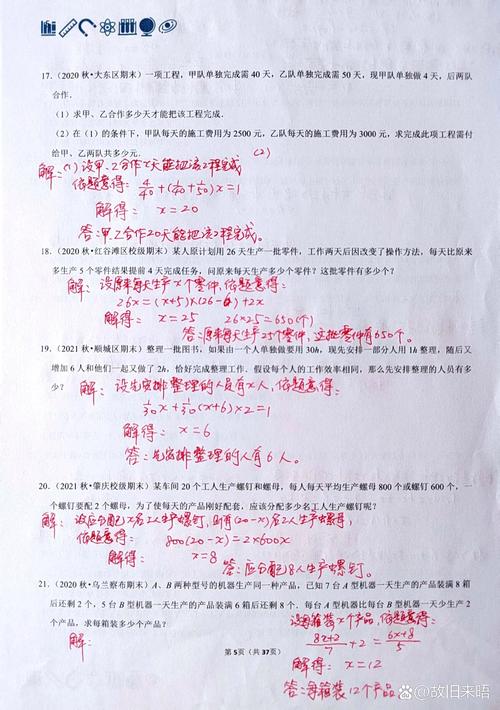 17.（2020 秋•大东区期末）一项工程，甲队单独完成需 40 天，乙队单独完成需 50 天，现甲队单独做 4 天，后两队
合作．
（1）求甲、乙合作多少天才能把该工程完成．
（2）在（1）的条件下，甲队每天的施工费用为 2500 元，乙队每天的施工费用为 3000 元，求完成此项工程需付
给甲、乙两队共多少元．
解：(1) 设甲、乙合作x天能把该工程完成 (2)
依题意得：4/40+(1/40+1/50)x=1
解得：x=20
答：甲乙合作20天能把该工程完成。
18.（2020 秋•红谷滩区校级期末）某人原计划用 26 天生产一批零件，工作两天后因改变了操作方法，每天比原来
多生产 5 个零件结果提前 4 天完成任务，问原来每天生产多少个零件？这批零件有多少个？
解：设原来每天生产x个零件，依题意得：
26x=(x+5)×(26-6)+2x
解得：x=25 26×25=650(个)
答：原来每天生产25个零件，这批零件有650个。
19.（2021 秋•顺城区期末）整理一批图书，如果由一个人单独做要用 30h，现先安排一部分人用 1h 整理，随后又
增加 6 人和他们一起又做了 2h，恰好完成整理工作．假设每个人的工作效率相同，那么先安排整理的人员有多
少？ 解：设先安排整理的人员有x人，依题意得：
1/30x+1/30(x+6)×2=1
解得：x=6
答：先安排整理的人有6人。
20.（2021 秋•肇庆校级期末）某车间 20 个工人生产螺钉和螺母，每人每天平均生产螺母 800 个或螺钉 600 个，一
个螺钉要配 2 个螺母，为了使每天的产品刚好配套，应该分配多少名工人生产螺钉呢？
解：设应分配x名工人生产螺钉，则有(20-x)名工人生产螺母，
依题意得：800(20-x)=2×600x
解得：x=8
答：应分配8人生产螺钉。
21.（2020 秋•乌兰察布期末）A、B 两种型号的机器生产同一种产品，已知 7 台 A 型机器一天生产的产品装满 8 箱
后还剩 2 个，5 台 B 型机器一天生产的产品装满 6 箱后还剩 8 个．每台 A 型机器比每台 B 型机器一天少生产 2
个产品，求每箱装多少个产品？
解：
设每箱装x个产品，依题意得：
8x+2/7+2=6x+8/5
解得：x=12
答：每箱装12个产品
第 5页（共 37页）
@故旧来晤